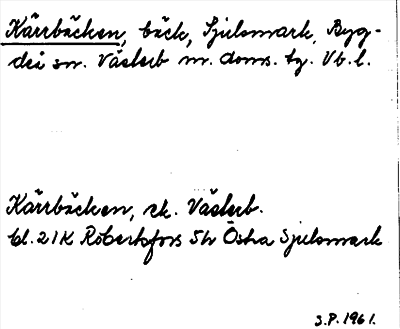 Kärrbäcken, bäck, Sjulsmark, Byg-
deå sn. Västerb. n. doms. tg. Vb. l.
Kärrbäcken, ek. Västerb.
bl. 21K Robertsfors 5h Östra Sjulsmark
S.P. 1961.